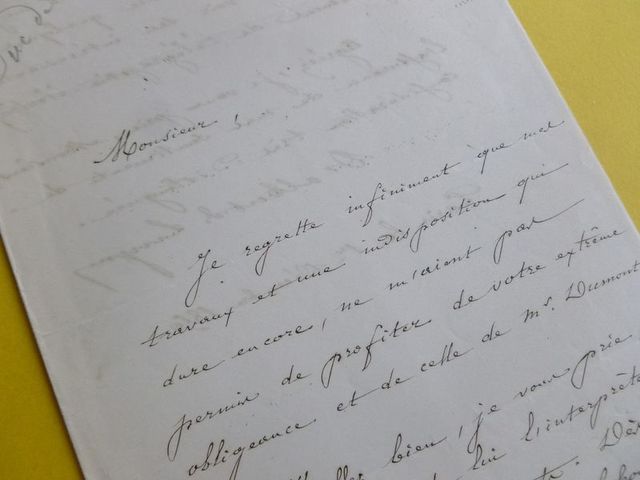 Duc de
Monsieur,
Je regrette infiniment que mes
travaux et une indisposition qui
dure encore, ne m'aient pas
permis de profiter de votre extrême
obligeance et de celle de mr. Dumont
bien, je vous prie,
lui l'interprète
Dès